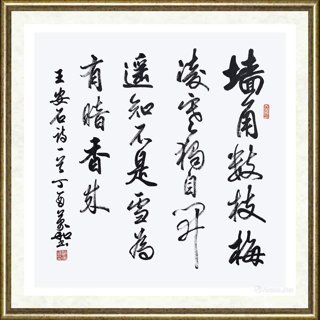 墙角数枝梅
凌寒独自開
遥知不是雪為
有暗香来
王安石詩一首丁酉